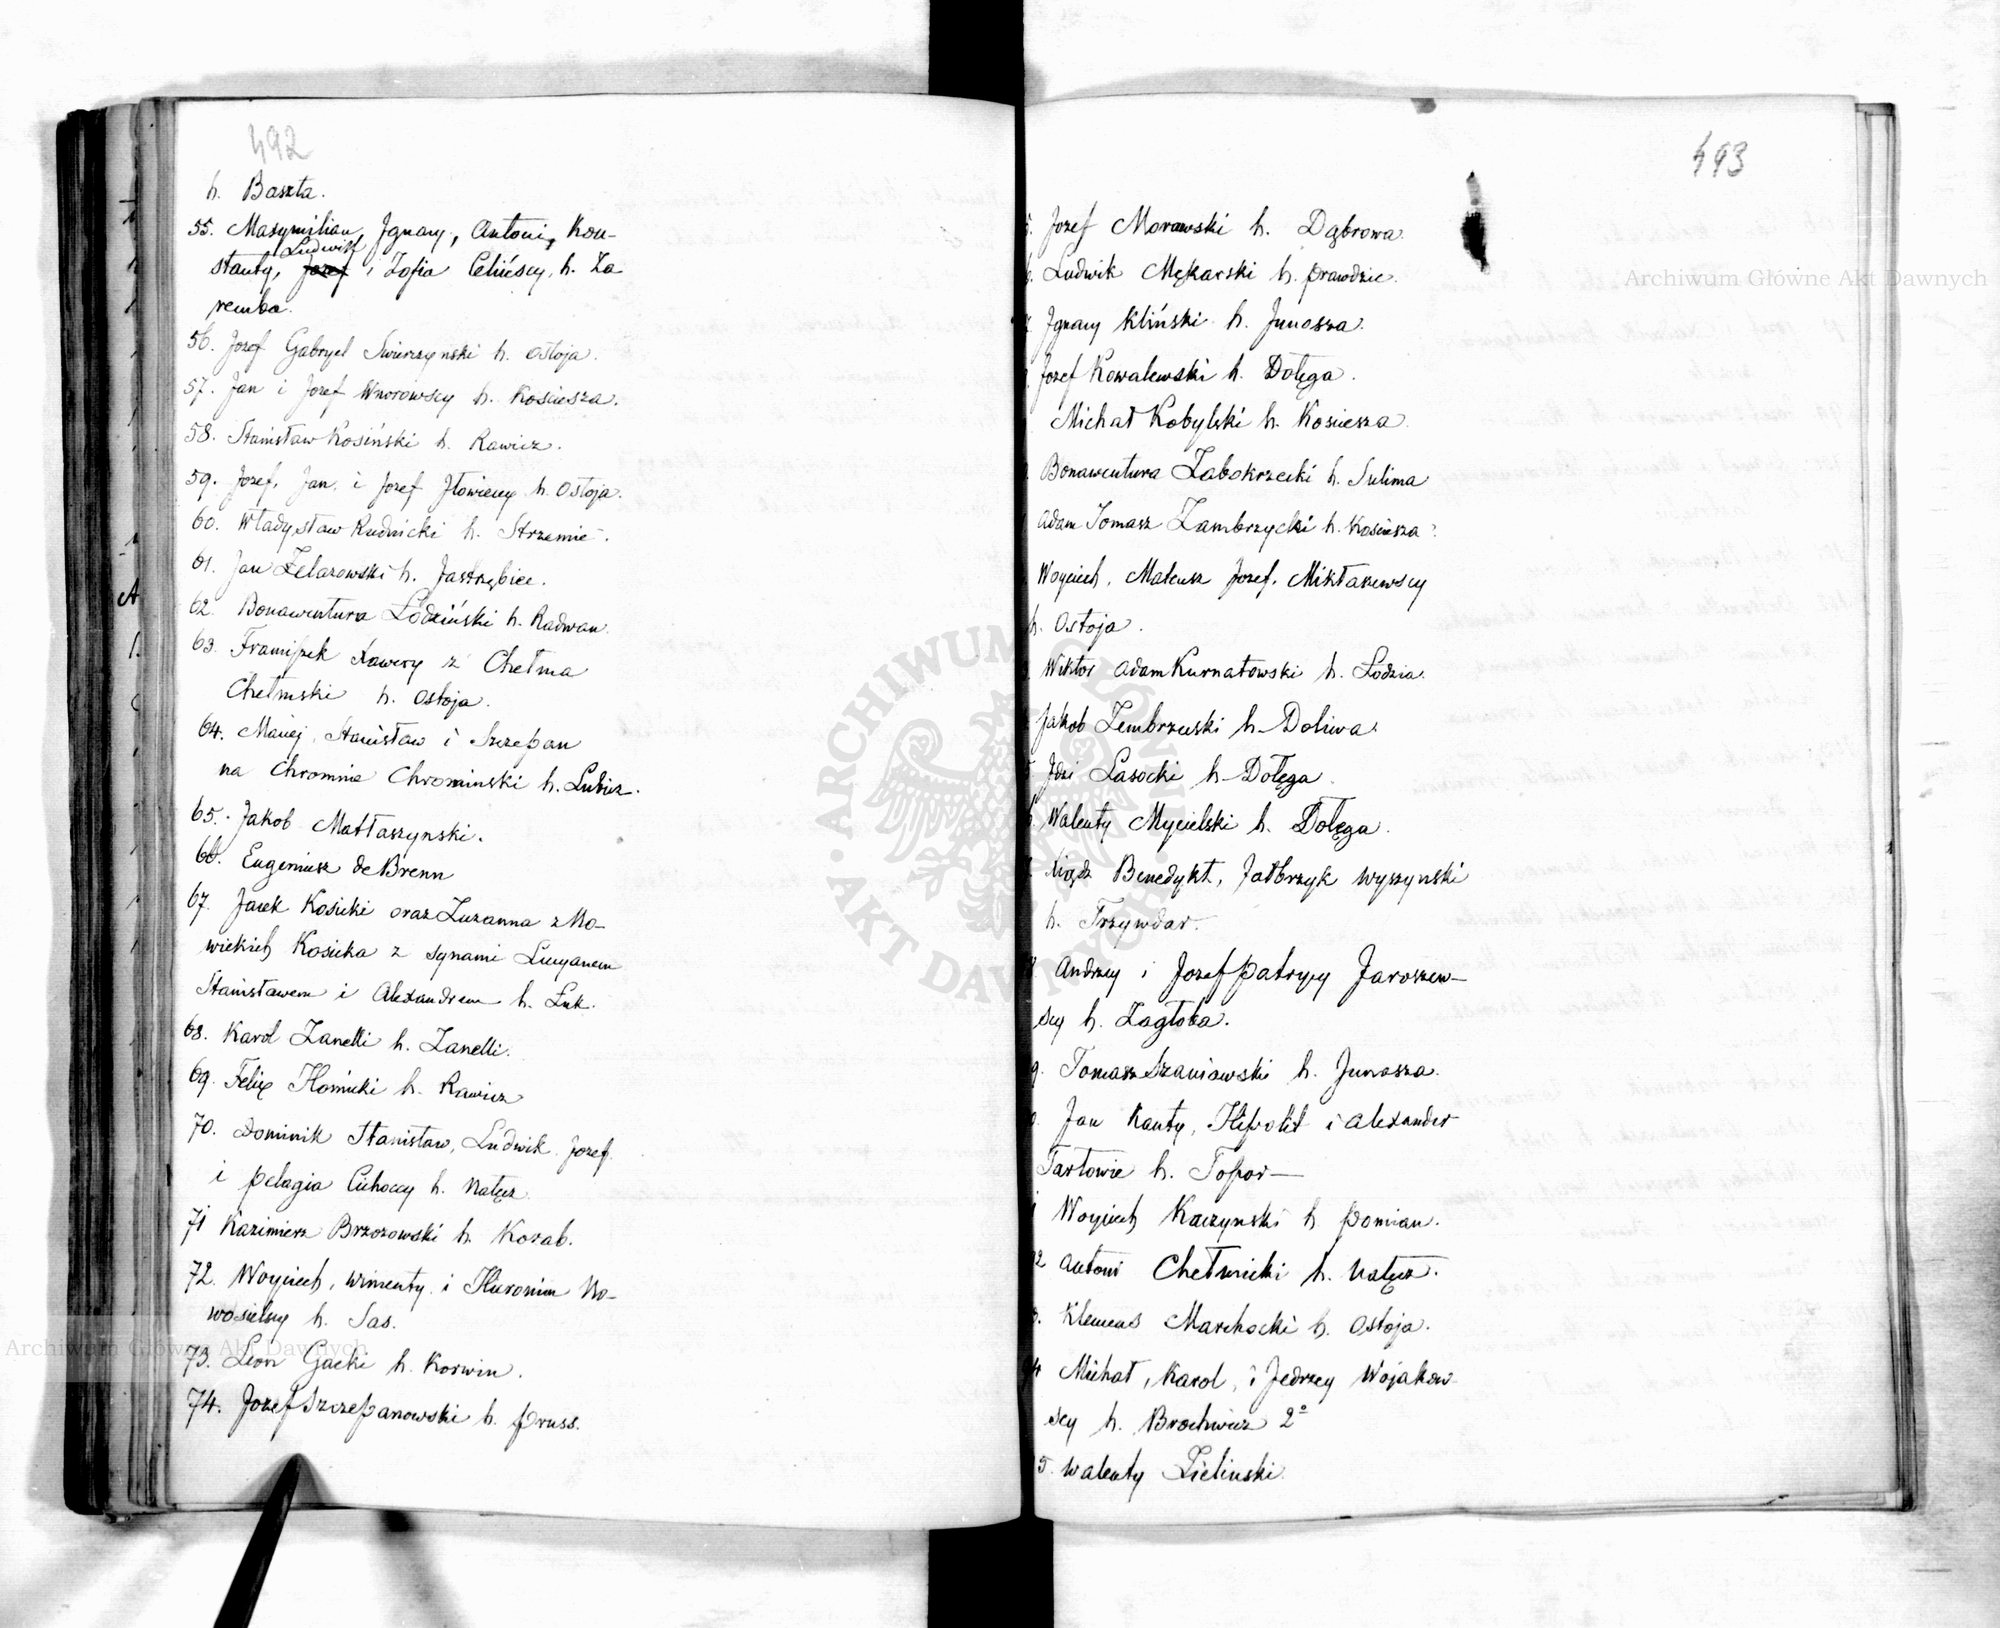 492
h. Baszta.
55. Maxymilian, Ignacy, Antoni, Kon-
stanty, Ludwik i Zofia Celińscy, h. Za
remba.
56. Jozef Gabryel Swierzynski h. Ostoja.
57. Jan i Jozef Wnorowscy h. Kościesza.
58. Stanisław Kosiński h. Rawicz.
59. Jozef, Jan, i Jozef Iłowieccy h. Ostoja.
60. Władysław Rudnicki h. Strzemie.
61. Jan Zelazowski h. Jastrzębiec.
62. Bonawentura Łodziński h. Radwan.
63. Franciszek Xawery z Chełma
Chełmski h. Ostoja.
64. Maciej, Stanisław i Szczepan
na Chromnie Chrominski h. Lubicz.
65. Jakob Matłaszynski.
66. Eugeniusz de Brenn
67. Jacek Kosicki oraz Zuzanna z No-
wickich Kosicka z synami Lucyanem
Stanisławem i Alexandrem h. Łuk.
68. Karol Zanelli h. Zanelli.
69. Felix Słonicki h. Rawicz
70. Dominik Stanisław, Ludwik Jozef
i Pelagia Cichoccy h. Nałęcz
71 Kazimierz Brzozowski h. Korab.
72. Woyciech, Wincenty i Hieronim No-
wosielscy h. Sas.
73. Leon Gacki h. Korwin.
74. Jozef Szczepanowski h. Pruss.
493
5. Jozef Morawski h. Dąbrowa.
Ludwik Mękarski h. Prawdzic.
Ignacy Kliński h. Junosza.
Jozef Kowalewski h. Dołęga.
Michał Kobylski h. Kosciesza
Bonawentura Zabokrzecki h. Sulima
Adam Tomasz Zambrzycki h. Kosciesza
Woyciech, Mateusz Jozef, Mikłaszewscy
h. Ostoja.
Wiktor Adam Kurnatowski h. Lodzia.
Jakob Zembrzuski h. Doliwa
Idzi Lasocki h. Dołęga
Walenty Mycielski h. Dołęga.
Xiądz Benedykt, Jałbrzyk Wyszynski
h. Trzywdar.
Andrzey i Jozef Patrycy Jaroszew-
scy h. Zagłoba.
9. Tomasz Szaniawski h. Junosza.
0. Jan Kanty, Hipolit i Alexander
Tarłowie h. Topor
Woyciech Kaczynski h. Pomian.
92 Antoni Chełmicki h. Nałęcz.
3. Klemens Marchocki h. Ostoja.
94 Michał, Karol, i Jedrzey Wojakow-
scy h. Brochwicz 2º
5. Walenty Zielinski.
Archiwum Główne Akt Dawnych
Archiwum Główne Akt Dawnych
ARCHIWUM GŁÓWNE
AKT DAWNYCH